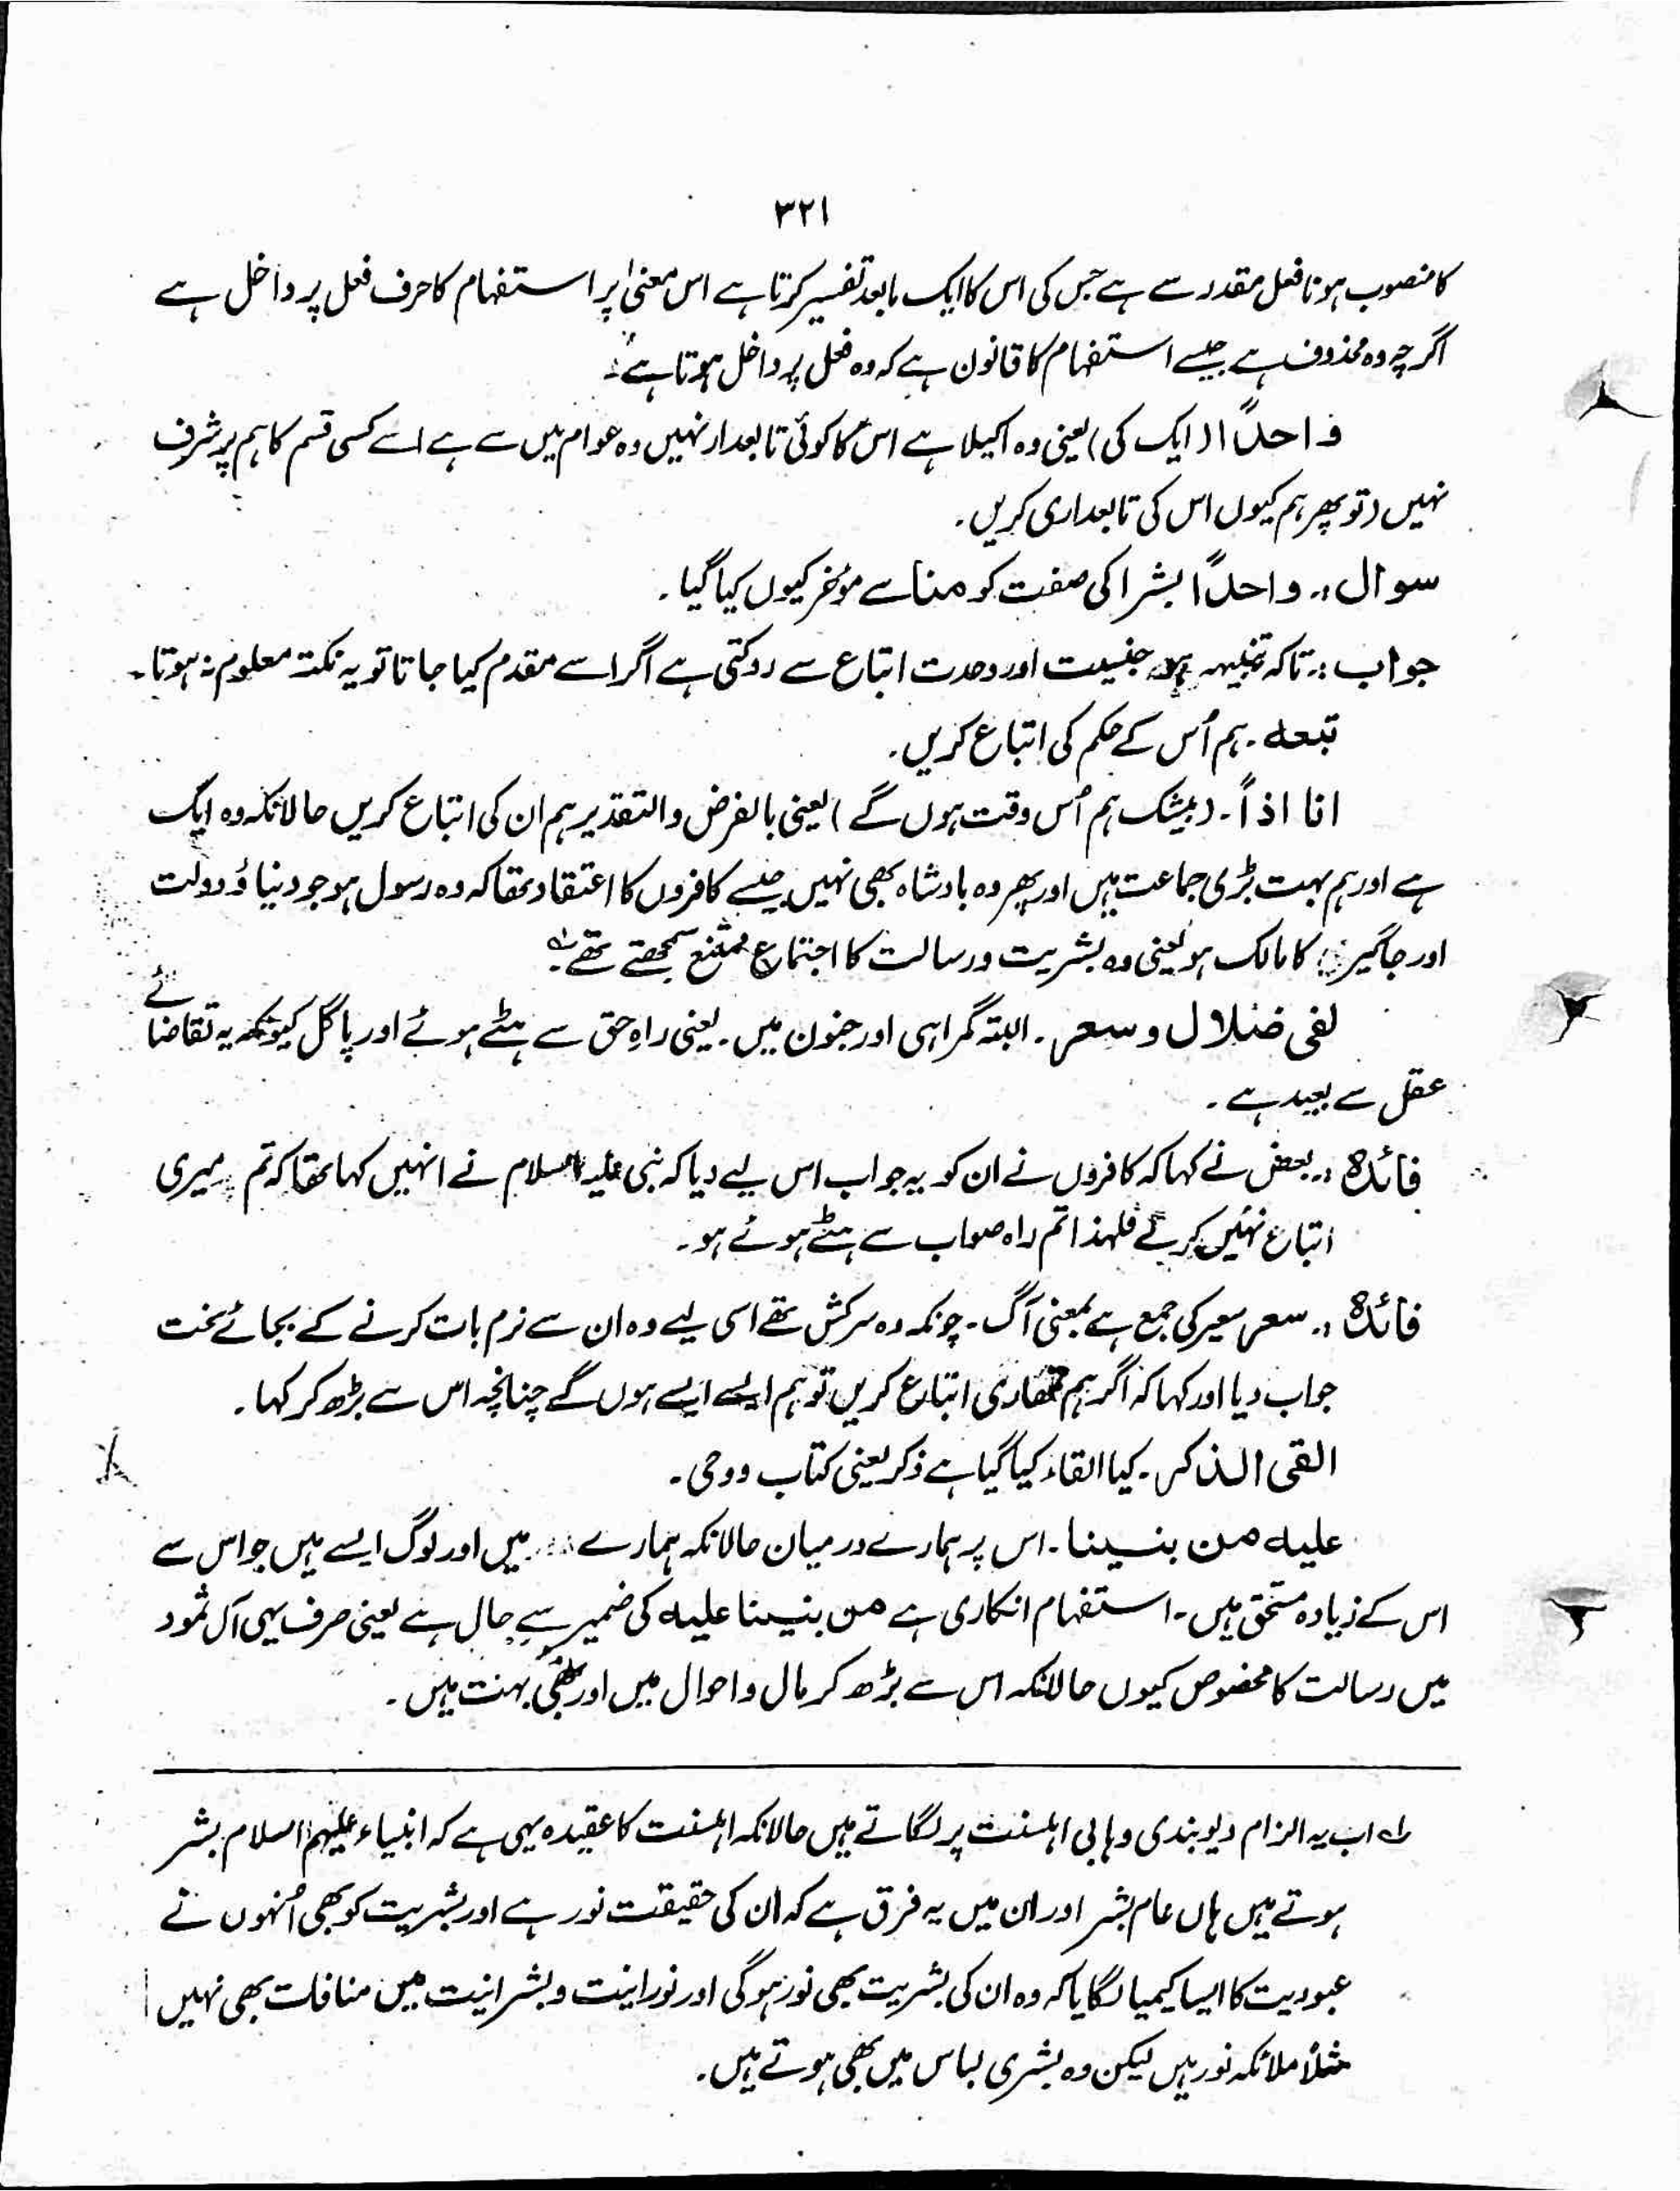 ۳۲۱
کا منصوب ہونا فعل مقدر سے ہے جس کی اس کا ایک مابعد تفسیر کرتا ہے اس معنیٰ پر استفہام کا حرف فعل پر داخل ہے
اگرچہ وہ محذوف ہے جیسے استفہام کا قانون ہے کہ وہ فعل پر داخل ہوتا ہے۔
واحدًا (ایک کی) یعنی وہ اکیلا ہے اس کا کوئی تابعدار نہیں وہ عوام میں سے ہے اسے کسی قسم کا ہم پر شرف
نہیں (تو پھر ہم کیوں اس کی تابعداری کریں۔
سوال :۔ واحدًا بشرا کی صفت کو منا سے مؤخر کیوں کیا گیا۔
جواب :۔ تاکہ تنبیہہ ہو جنسیت اور وحدت اتباع سے روکتی ہے اگر اسے مقدم کیا جاتا تو یہ نکتہ معلوم نہ ہوتا۔
تبعہ۔ ہم اُس کے حکم کی اتباع کریں۔
انا اذاً۔ (بیشک ہم اُس وقت ہوں گے) یعنی بالفرض والتقدیر ہم ان کی اتباع کریں حالانکہ وہ ایک
ہے اور ہم بہت بڑی جماعت ہیں اور پھر وہ بادشاہ بھی نہیں جیسے کافروں کا اعتقاد تھا کہ وہ رسول ہو جو دنیا و دولت
اور جاگیر کا مالک ہو یعنی وہ بشریت و رسالت کا اجتماع ممتنع سمجھتے تھے۔ لہ
لفی ضلال وسعر۔ البتہ گمراہی اور جنون میں۔ یعنی راہِ حق سے ہٹے ہوئے اور پاگل کیونکہ یہ تقاضائے
عقل سے بعید ہے۔
فائدہ :۔ بعض نے کہا کہ کافروں نے ان کو یہ جواب اس لیے دیا کہ نبی علیہ السلام نے انہیں کہا تھا کہ تم میری
اتباع نہیں کرتے فلہذا تم راہ صواب سے ہٹے ہوئے ہو۔
فائدہ :۔ سعر سعیر کی جمع ہے بمعنی آگ۔ چونکہ وہ سرکش تھے اسی لیے وہ ان سے نرم بات کرنے کے بجائے سخت
جواب دیا اور کہا کہ اگر ہم تمھاری اتباع کریں تو ہم ایسے ایسے ہوں گے چنانچہ اس سے بڑھ کر کہا۔
القی الذکر۔ کیا القاء کیا گیا ہے ذکر یعنی کتاب ووحی۔
علیہ من بنسینا۔ اس پر ہمارے درمیان حالانکہ ہمارے میں اور لوگ ایسے ہیں جو اس سے
اس کے زیادہ مستحق ہیں۔ استفہام انکاری ہے من بنسینا علیہ کی ضمیر سے حال ہے یعنی صرف یہی آل ثمود
میں رسالت کا مخصوص کیوں حالانکہ اس سے بڑھ کر مال و احوال میں اور بھی بہت ہیں۔
لہ اب یہ الزام دیوبندی وہابی اہلسنت پر لگاتے ہیں حالانکہ اہلسنت کا عقیدہ یہی ہے کہ انبیاء علیہم السلام بشر
ہوتے ہیں ہاں عام بشر اور ان میں یہ فرق ہے کہ ان کی حقیقت نور ہے اور بشریت کو بھی اُنہوں نے
عبودیت کا ایسا کیمیا لگایا کہ وہ ان کی بشریت بھی نور ہوگی اور نورانیت و بشرانیت میں منافات بھی نہیں
مثلاً ملائکہ نور ہیں لیکن وہ بشری لباس میں بھی ہوتے ہیں۔